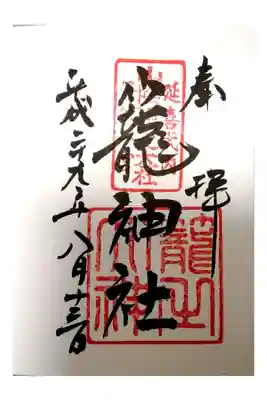 奉拝
延喜式内
籠神社
籠之大神
平成二九年八月十三日